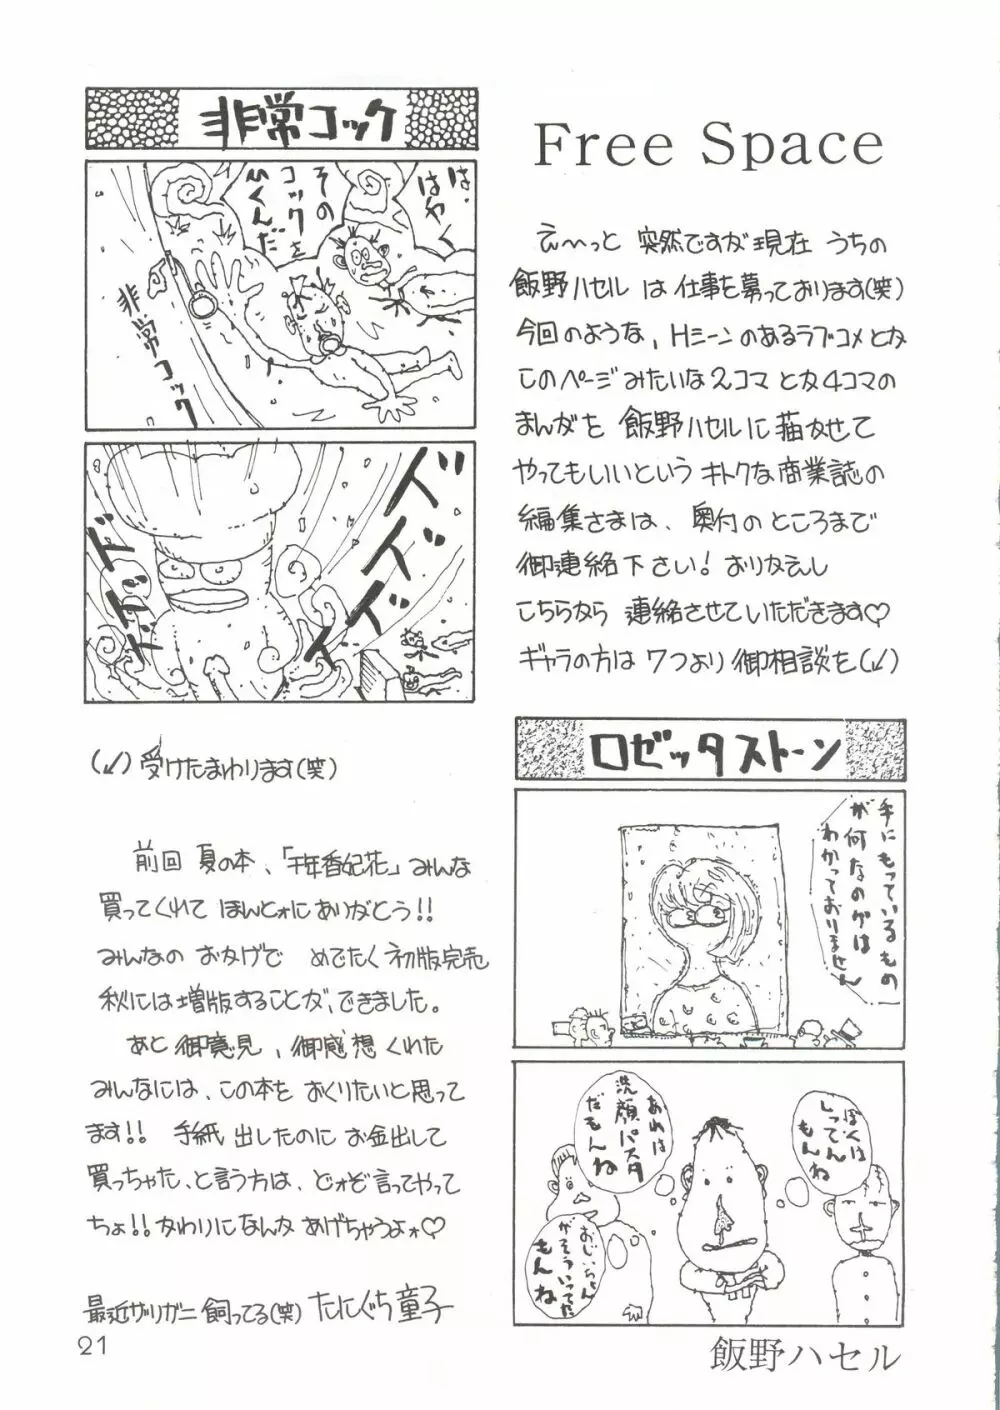 Free Space
え〜っと 突然ですが現在 うちの
飯野ハセル は 仕事を募っております(笑)
今回のような、Hシーンのあるラブコメとか
このページみたいな2コマとか4コマの
まんがを 飯野ハセルに描かせて
やってもいいという キトクな商業誌の
編集さまは、奥付のところまで
御連絡下さい! おりかえし
こちらから 連絡させていただきます♡
ギャラの方は 7つより御相談を(↙)
非常コック
は、はやく
そのコックをひくんだ
非常コック
ズズズズ
ドドドド
(↙) 受けたまわります(笑)
前回 夏の本、「千年香妃花」みんな
買ってくれて ほんとォにありがとう!!
みんなの おかげで めでたく初版完売
秋には増版することが、できました。
あと 御意見、御感想 くれた
みんなには、この本を おくりたいと思って
ます!! 手紙 出したのに お金出して
買っちゃた、と言う方は、どォぞ言ってやって
ちょ!! かわりになんか あげちゃうよォ♡
最近ザリガニ 飼ってる(笑) たにぐち童子
ロゼッタストーン
手にもっているもの
が何なのかは
わかっておりません
ぼくは
しってん
もんね
あれは
洗顔パスタ
だもんね
おじいちゃん
がそういってた
もんね
飯野ハセル
21